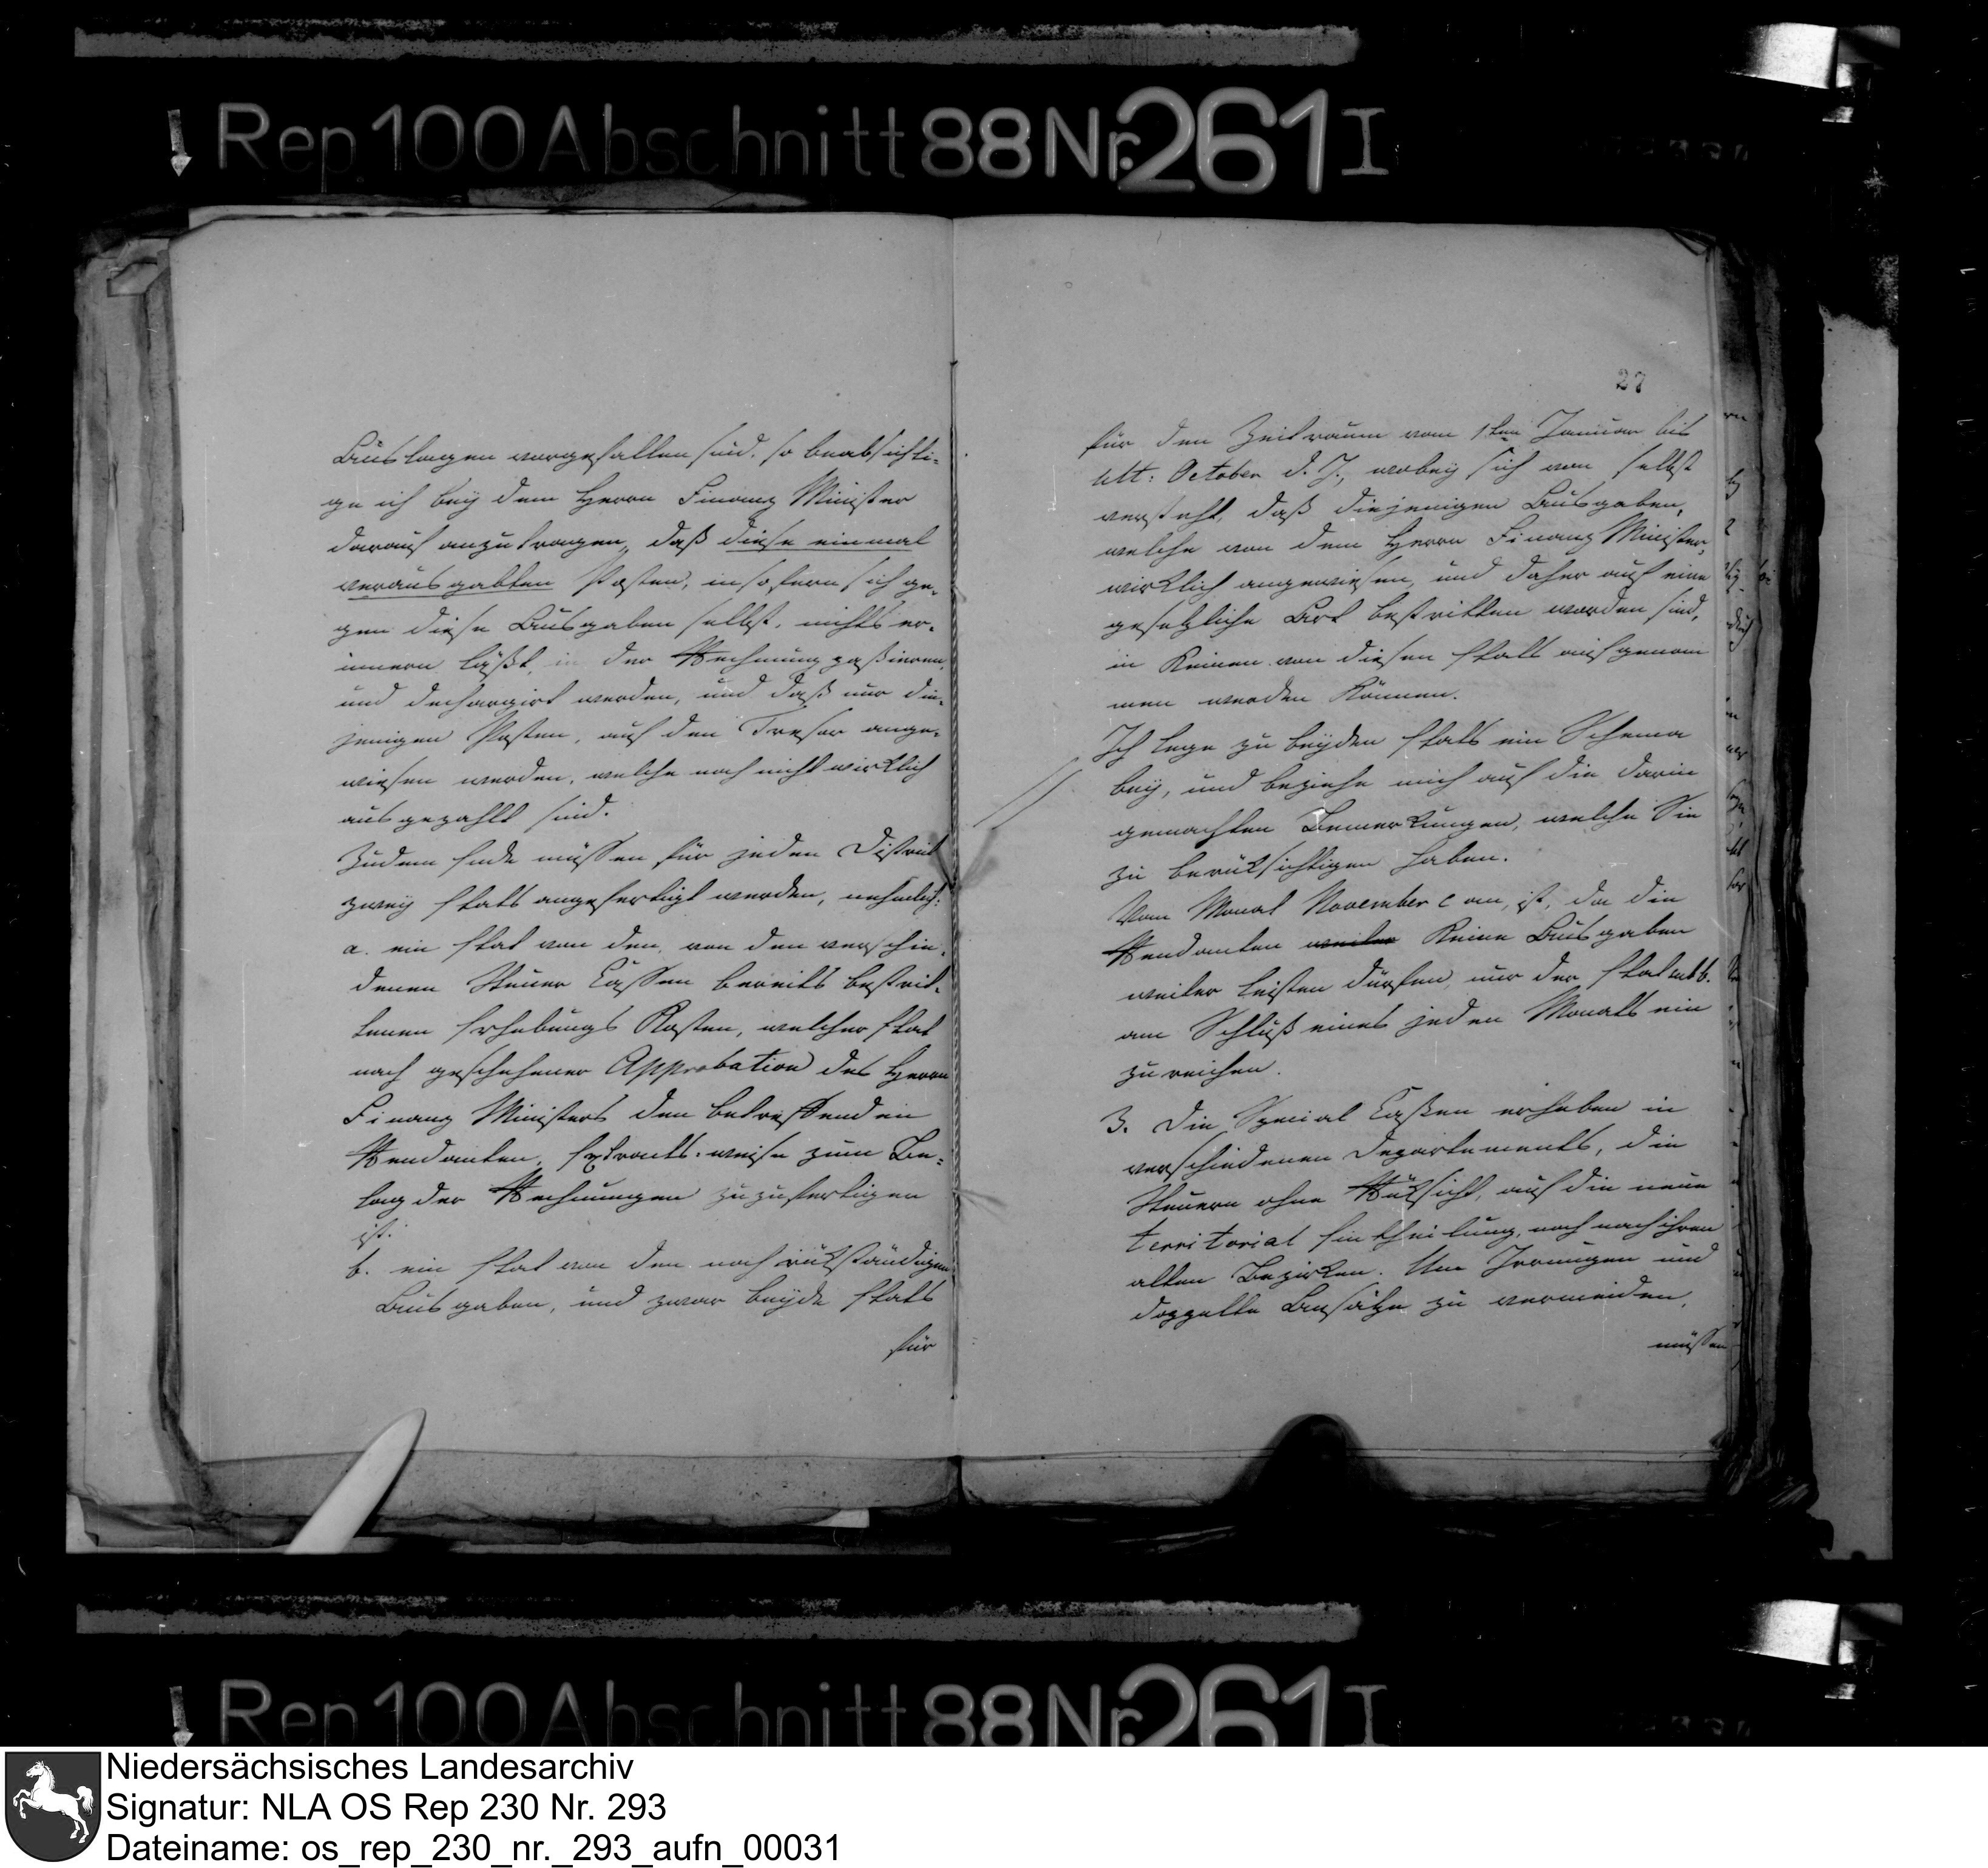 Rep 100 Abschnitt 88 Nr. 261 I
Auslagen vorgefallen sind, so beabsichti-
ge ich bey dem Herrn Finanz Minister
darauf anzutragen, daß diese einmal
verausgabten Posten, insofern sich ge-
gen diese Ausgaben selbst, nichts er-
innern läßt, in der Rechnung paßieren,
und dechargirt werden, und daß nur die-
jenigen Posten, auf den Tresor ange-
wiesen werden, welche noch nicht wirklich
ausgezahlt sind.
Zu dem Ende müssen für jeden District
zwey Etats angefertigt werden, nehmlich:
a. ein Etat von den, von den verschie-
denen Steuer Cassen bereits bestrit-
tenen Erhebungs Kosten, welcher Etat
nach geschehener Approbation des Herrn
Finanz Ministers den betreffenden
Rendanten, Extracts-weise zum Be-
lag der Rechnungen zuzufertigen
ist.
b. ein Etat von den noch rükständigen
Ausgaben, und zwar beyde Etats
für
27
für den Zeitraum vom 1ten Januar bis
ult: October d. J., wobey sich von selbst
versteht, daß diejenigen Ausgaben,
welche von dem Herrn Finanz Minister,
wirklich angewiesen, und daher auf eine
gesetzliche Art bestritten worden sind,
in keinen von diesen Etats aufgenom
men werden können.
Ich lege zu beyden Etats ein Schema
bey, und beziehe mich auf die darin
gemachten Bemerkungen, welche Sie
zu berüksichtigen haben.
Vom Monat November c an, ist, da die
Rendanten weiter keine Ausgaben
weiter leisten dürfen, nur der Etat sub b.
am Schluß eines jeden Monats ein
zureichen.
3. Die Special Caßen erheben in
verschiedenen Departements, die
Steuern ohne Rüksicht, auf die neue
territorial Eintheilung, noch nach ihren
alten Bezirken. Um Irrungen und
doppelte Ansätze zu vermeiden,
müssen
Rep 100 Abschnitt 88 Nr. 261 I
Niedersächsisches Landesarchiv
Signatur: NLA OS Rep 230 Nr. 293
Dateiname: os_rep_230_nr._293_aufn_00031